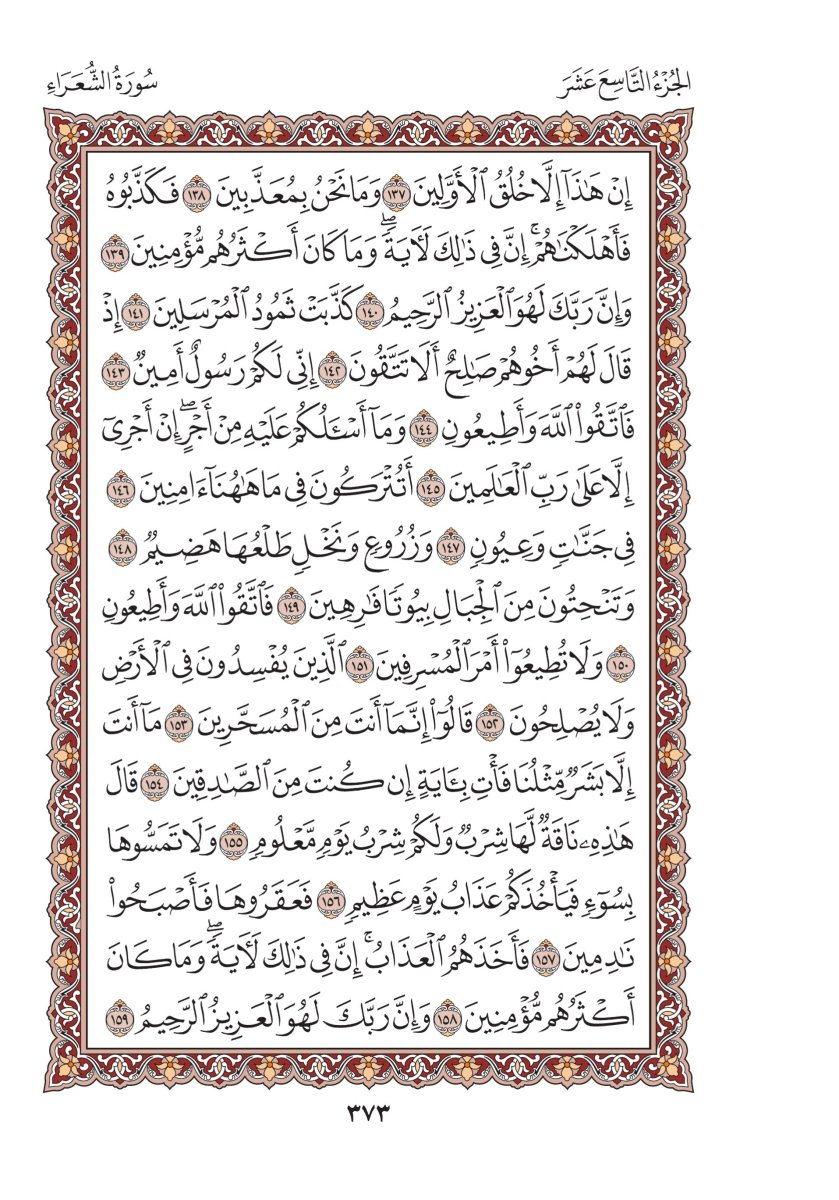 الجُزْءُ التَّاسِعَ عَشَرَ
سُورَةُ الشُّعَرَاءِ
إِنْ هَٰذَآ إِلَّا خُلُقُ ٱلْأَوَّلِينَ ١٣٧ وَمَا نَحْنُ بِمُعَذَّبِينَ ١٣٨ فَكَذَّبُوهُ
فَأَهْلَكْنَٰهُمْ ۚ إِنَّ فِى ذَٰلِكَ لَأٓيَةً ۖ وَمَا كَانَ أَكْثَرُهُم مُّؤْمِنِينَ ١٣٩
وَإِنَّ رَبَّكَ لَهُوَ ٱلْعَزِيزُ ٱلرَّحِيمُ ١٤٠ كَذَّبَتْ ثَمُودُ ٱلْمُرْسَلِينَ ١٤١ إِذْ
قَالَ لَهُمْ أَخُوهُمْ صَٰلِحٌ أَلَا تَتَّقُونَ ١٤٢ إِنِّى لَكُمْ رَسُولٌ أَمِينٌ ١٤٣
فَٱتَّقُوا۟ ٱللَّهَ وَأَطِيعُونِ ١٤٤ وَمَآ أَسْـَٔلُكُمْ عَلَيْهِ مِنْ أَجْرٍ ۖ إِنْ أَجْرِىَ
إِلَّا عَلَىٰ رَبِّ ٱلْعَٰلَمِينَ ١٤٥ أَتُتْرَكُونَ فِى مَا هَٰهُنَآ ءَامِنِينَ ١٤٦
فِى جَنَّٰتٍ وَعُيُونٍ ١٤٧ وَزُرُوعٍ وَنَخْلٍ طَلْعُهَا هَضِيمٌ ١٤٨
وَتَنْحِتُونَ مِنَ ٱلْجِبَالِ بُيُوتًا فَٰرِهِينَ ١٤٩ فَٱتَّقُوا۟ ٱللَّهَ وَأَطِيعُونِ
١٥٠ وَلَا تُطِيعُوٓا۟ أَمْرَ ٱلْمُسْرِفِينَ ١٥١ ٱلَّذِينَ يُفْسِدُونَ فِى ٱلْأَرْضِ
وَلَا يُصْلِحُونَ ١٥٢ قَالُوٓا۟ إِنَّمَآ أَنتَ مِنَ ٱلْمُسَحَّرِينَ ١٥٣ مَآ أَنتَ
إِلَّا بَشَرٌ مِّثْلُنَا فَأْتِ بِـَٔايَةٍ إِن كُنتَ مِنَ ٱلصَّٰدِقِينَ ١٥٤ قَالَ
هَٰذِهِۦ نَاقَةٌ لَّهَا شِرْبٌ وَلَكُمْ شِرْبُ يَوْمٍ مَّعْلُومٍ ١٥٥ وَلَا تَمَسُّوهَا
بِسُوٓءٍ فَيَأْخُذَكُمْ عَذَابُ يَوْمٍ عَظِيمٍ ١٥٦ فَعَقَرُوهَا فَأَصْبَحُوا۟
نَٰدِمِينَ ١٥٧ فَأَخَذَهُمُ ٱلْعَذَابُ ۚ إِنَّ فِى ذَٰلِكَ لَأٓيَةً ۖ وَمَا كَانَ
أَكْثَرُهُم مُّؤْمِنِينَ ١٥٨ وَإِنَّ رَبَّكَ لَهُوَ ٱلْعَزِيزُ ٱلرَّحِيمُ ١٥٩
٣٧٣